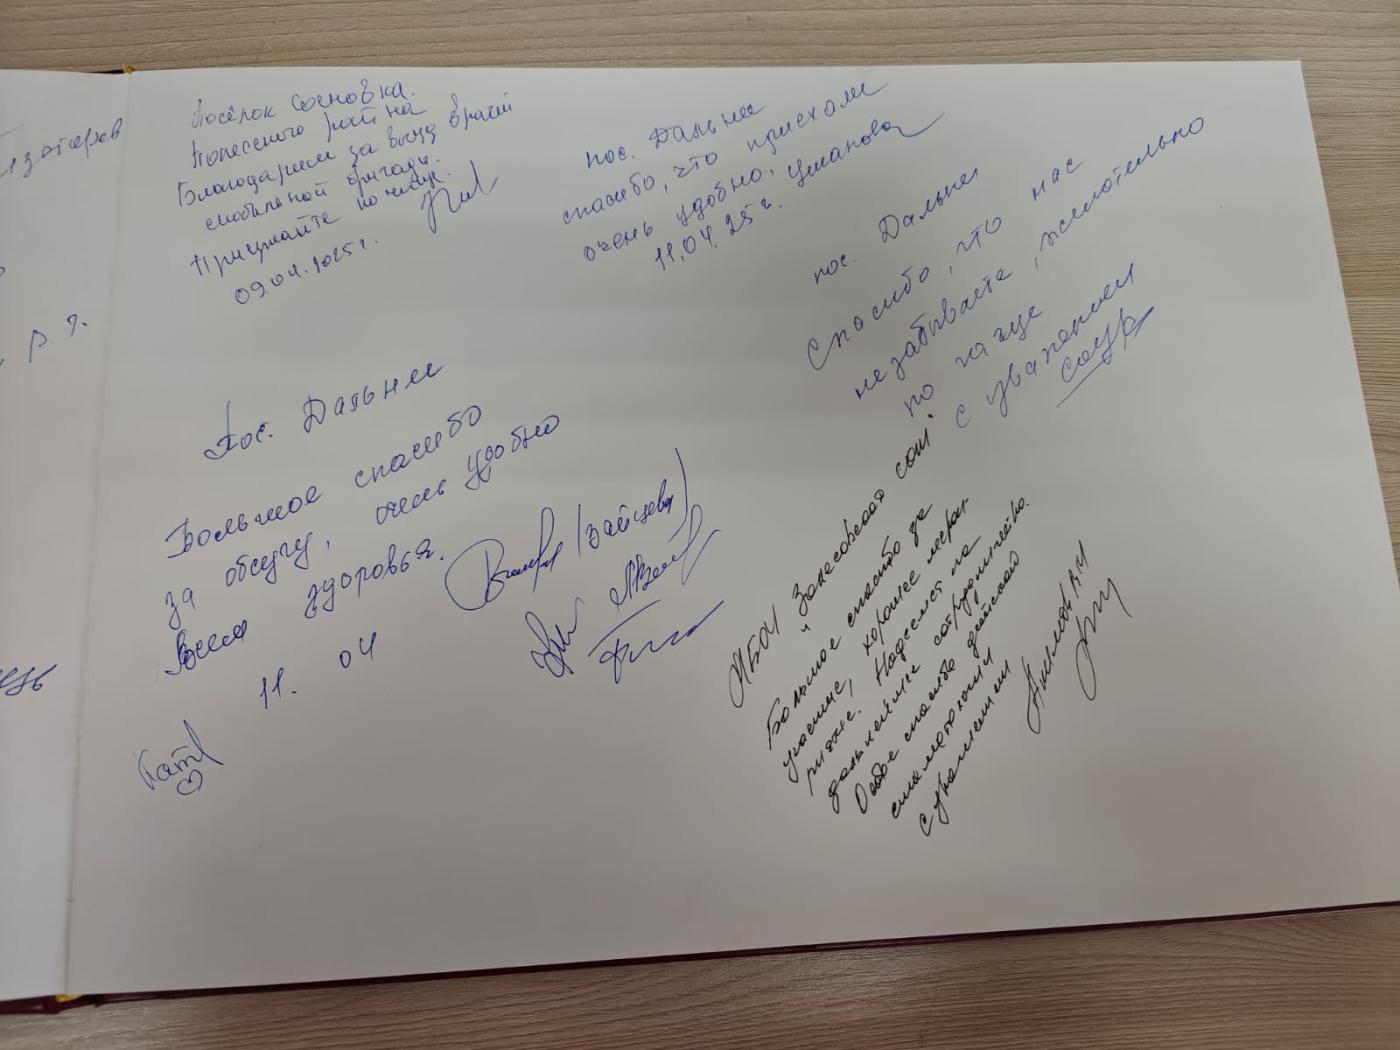 Посёлок Сосновка.
Полесского район
Благодарим за выезд врачей
мобильной бригады.
Приезжайте почаще.
09.04.2025 г.
пос. Дальнее
спасибо, что приехали
очень удобно,
11.04.25 г. Уманова
пос. Дальнее
Спасибо, что нас
не забываете, желательно
по чаще
с уважением
Пос. Дальнее
Большое спасибо
за обслугу, очень удобно
Всем здоровья.
(Зайцева)
11. 04
МБОУ "Залесовская сош"
Большое спасибо за
участие, хорошее мероп
риятие. Надеемся на
дальнейшее сотрудничество.
Особое спасибо детской
стоматологии
с уважением